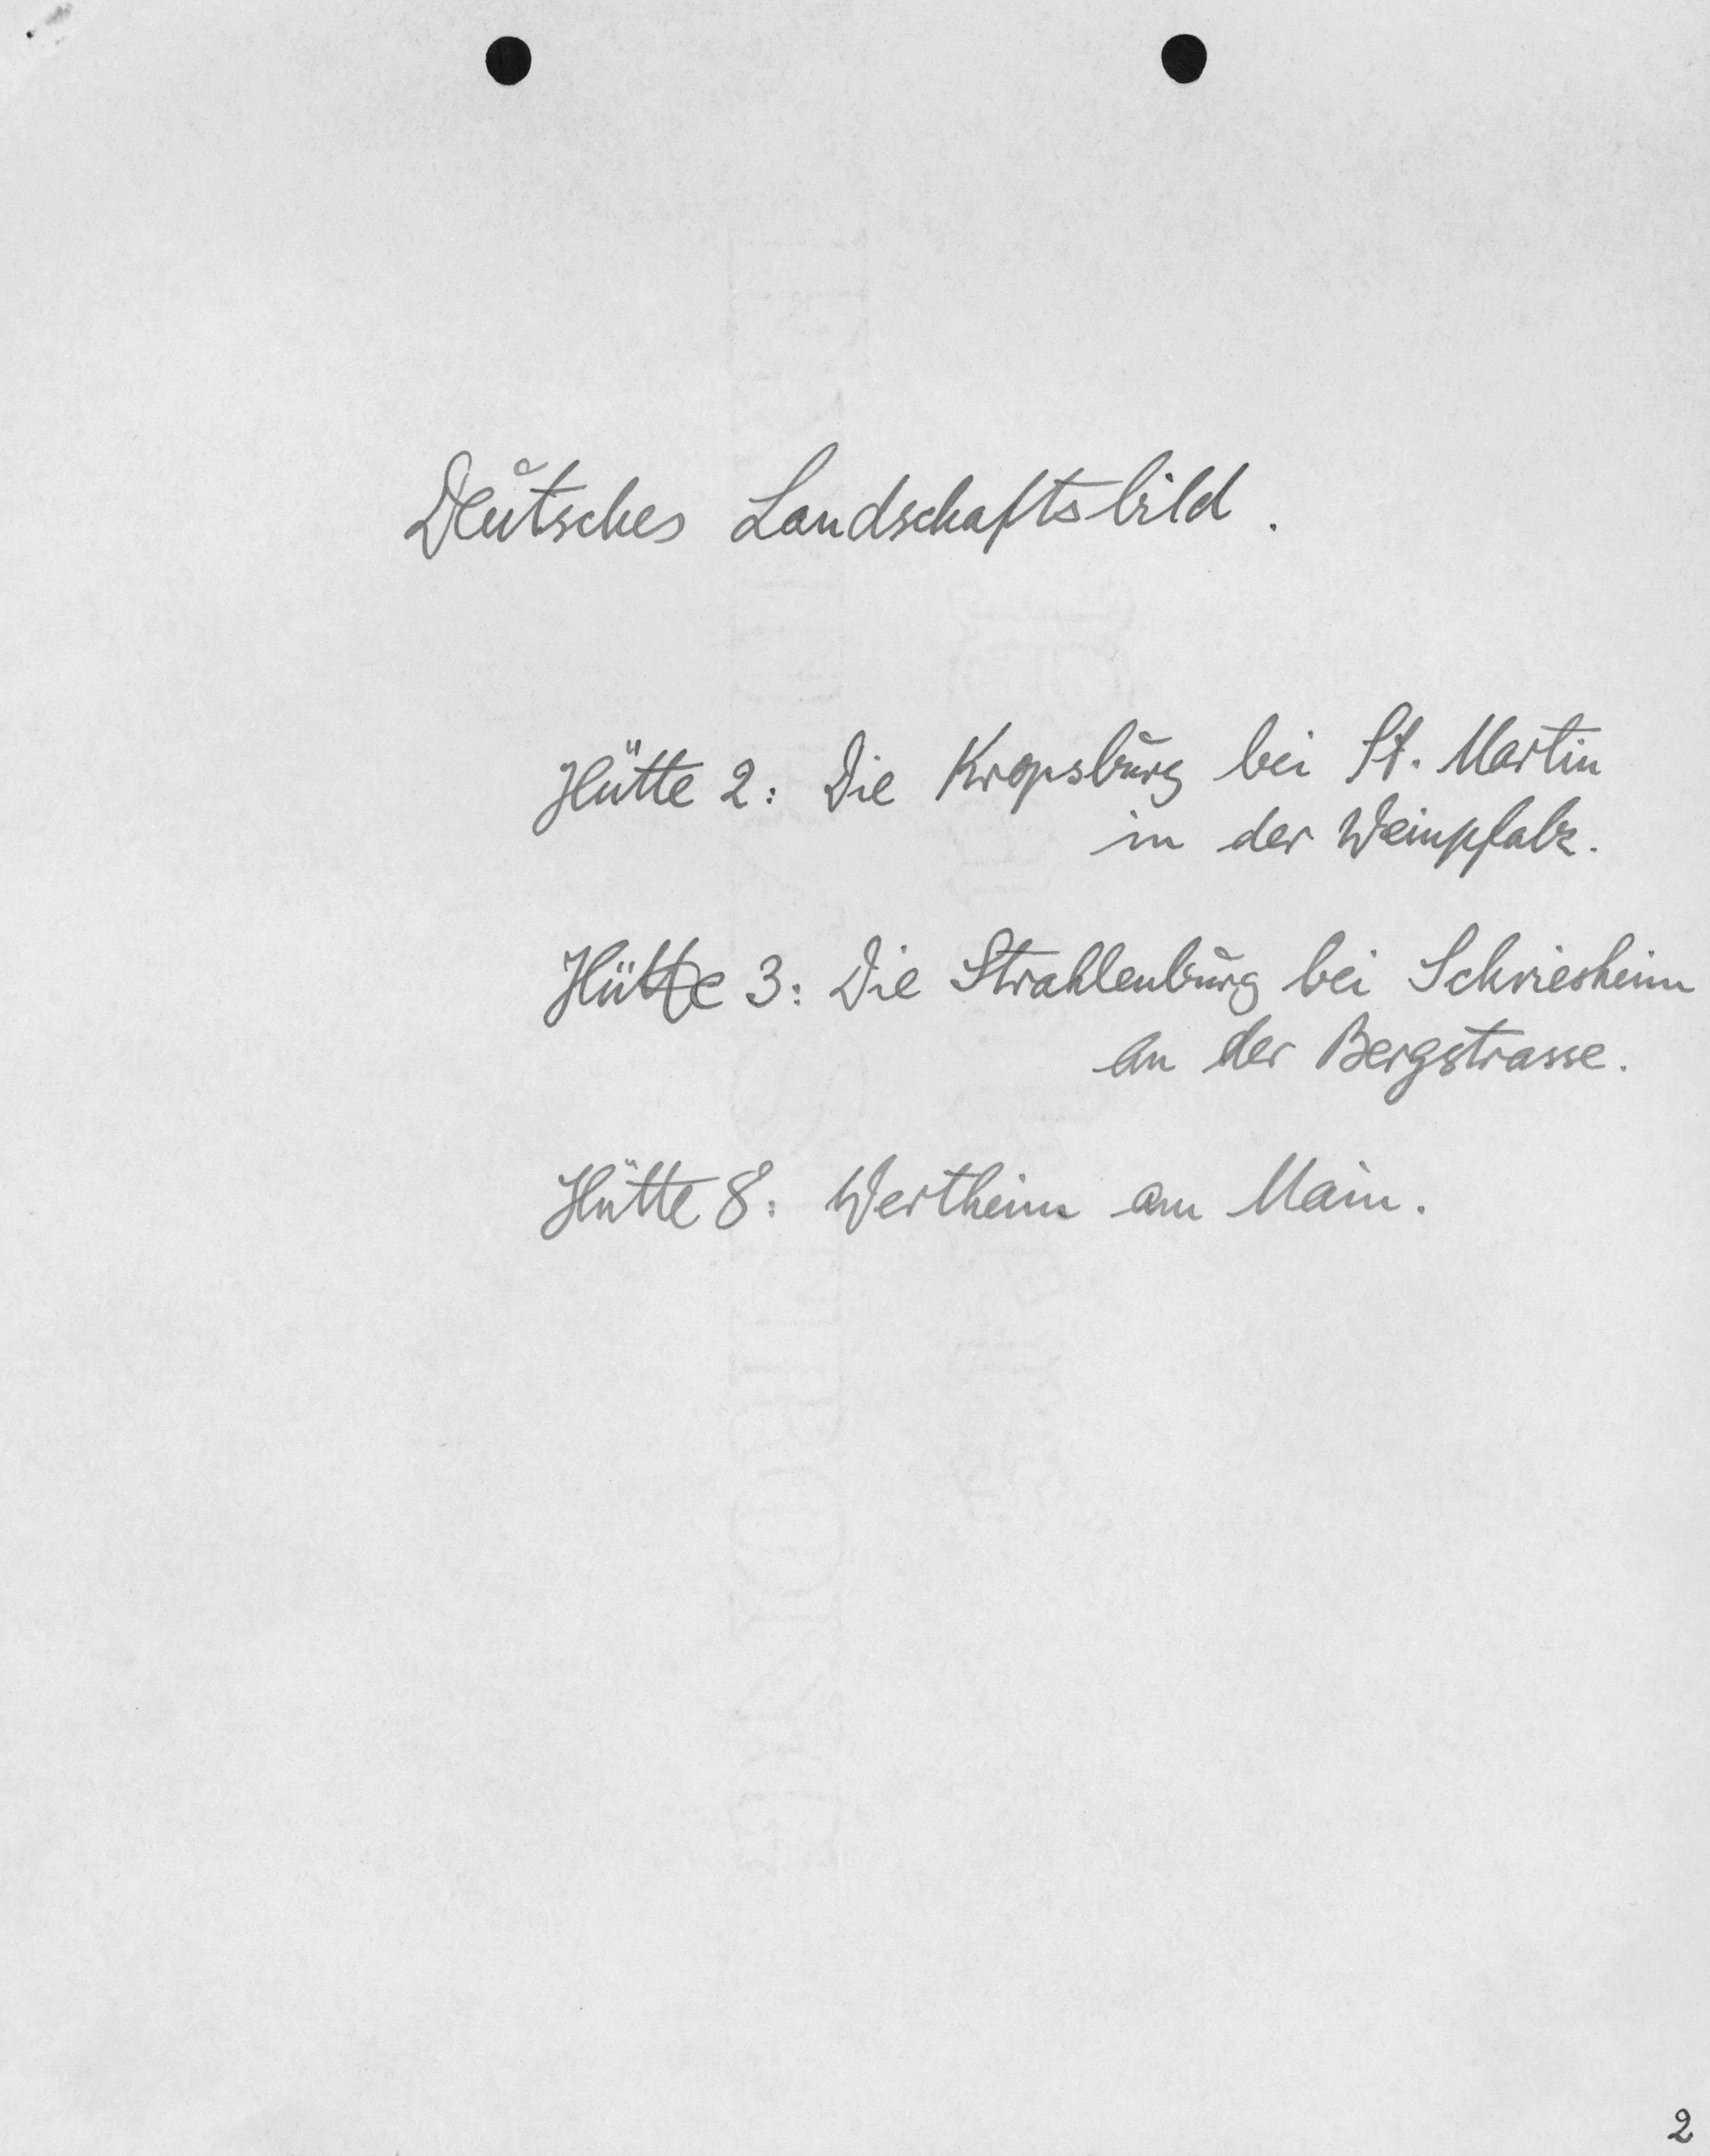 Deutsches Landschaftsbild.
Hütte 2: Die Kropsburg bei St. Martin
in der Weinpfalz.
Hütte 3: Die Strahlenburg bei Schriesheim
an der Bergstrasse.
Hütte 8: Wertheim am Main.
2